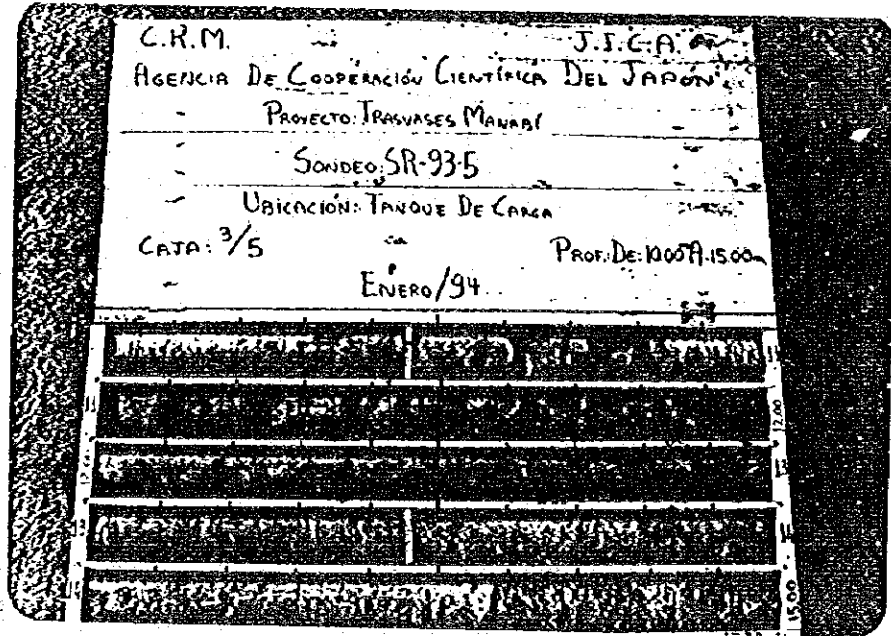 C.R.M. J.I.C.A.
AGENCIA DE COOPERACIÓN CIENTÍFICA DEL JAPÓN
PROYECTO: TRASVASES MANABÍ
SONDEO: SR-93-5
UBICACIÓN: TANQUE DE CARGA
CAJA: 3/5 PROF: DE: 10.00 A 15.00m
ENERO/94
11
11 12.00
13
13 14
15.00